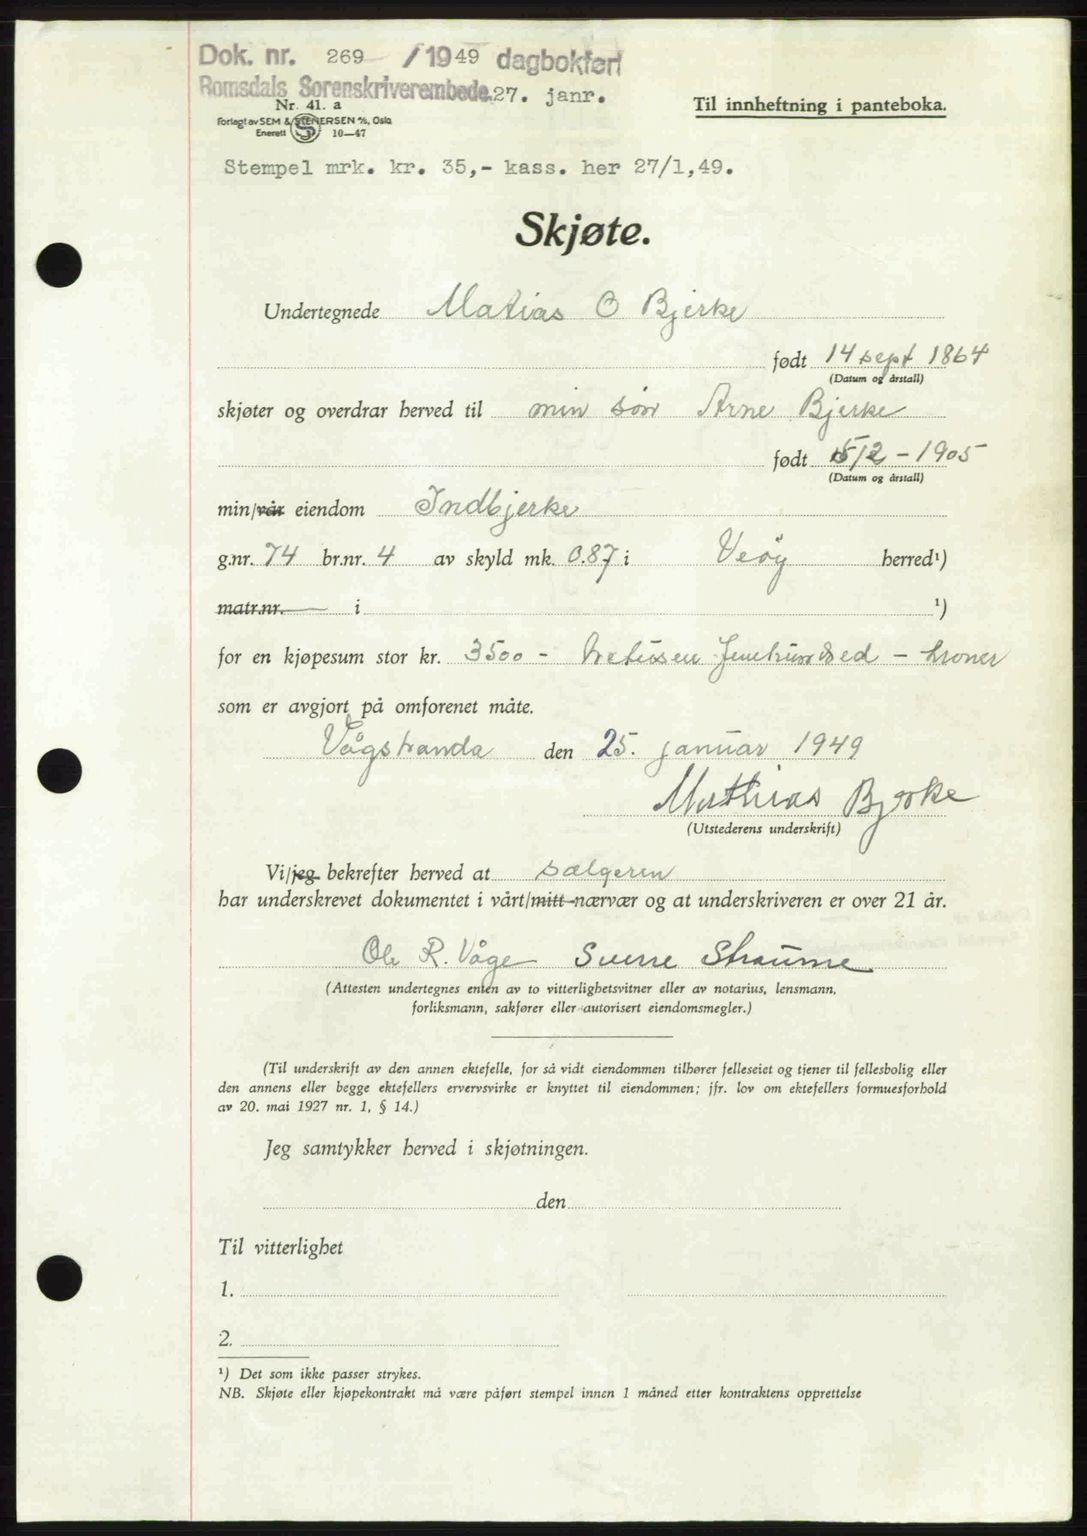 Dok. nr. 269 / 1949 dagbokført
Romsdals Sorenskriverembede. 27. janr.
Nr. 41. a
Forlagt av SEM & STENERSEN A/S, Oslo
Enerett S 10—47
Til innheftning i panteboka.
Stempel mrk. kr. 35,- kass. her 27/1,49.
Skjøte.
Undertegnede Matias O Bjerke
født 14 sept 1864
(Datum og årstall)
skjøter og overdrar herved til min søn Arne Bjerke
født 5/2 - 1905
(Datum og årstall)
min/vår eiendom Indbjerke
g.nr. 74 br.nr. 4 av skyld mk. 0.87 i Veøy herred¹)
matr.nr. i ¹)
for en kjøpesum stor kr. 3500 - Tretusen femhundred - kroner
som er avgjort på omforenet måte.
Vågstranda den 25. januar 1949
Mathias Bjerke
(Utstederens underskrift)
Vi/jeg bekrefter herved at sælgeren
har underskrevet dokumentet i vårt/mitt nærvær og at underskriveren er over 21 år.
Ole R. Våge Sverre Straume
(Attesten undertegnes enten av to vitterlighetsvitner eller av notarius, lensmann,
forliksmann, sakfører eller autorisert eiendomsmegler.)
(Til underskrift av den annen ektefelle, for så vidt eiendommen tilhører felleseiet og tjener til fellesbolig eller
den annens eller begge ektefellers ervervsvirke er knyttet til eiendommen; jfr. lov om ektefellers formuesforhold
av 20. mai 1927 nr. 1, § 14.)
Jeg samtykker herved i skjøtningen.
den
Til vitterlighet
1.
2.
¹) Det som ikke passer strykes.
NB. Skjøte eller kjøpekontrakt må være påført stempel innen 1 måned etter kontraktens opprettelse